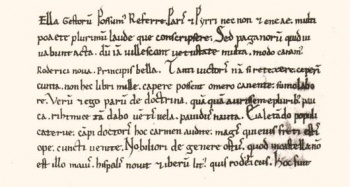 Ella gestorū possum᷒ referre. Paris & pyrri nec non & eneae. multi
poaete plurimū laude que conscripsere. Sed paganorū quid iu
vabunt acta. dū iā villescant vetustate multa. modo canam᷒
Roderici nova. principis bella. Tanti victoris nā si retexere. ceperī
cunta. non hec libri mille. capere possent. omero canente. sumo labo
re. Verū & ego parū de doctrina. quā quā aurissem e plurib; pau
ca. rihtmice tā dabo vētis vela. pavidus nauta. Eia letādo populi
caterve. cāpi doctoris hoc carmen audite. magis qui eius freti estis
ope. cuncti venite. Nobiliori de genere ortus. quod in castella nō
est illo maius. hispalis novit & iberū lit᷒. quis rodericus. Hoc fuit